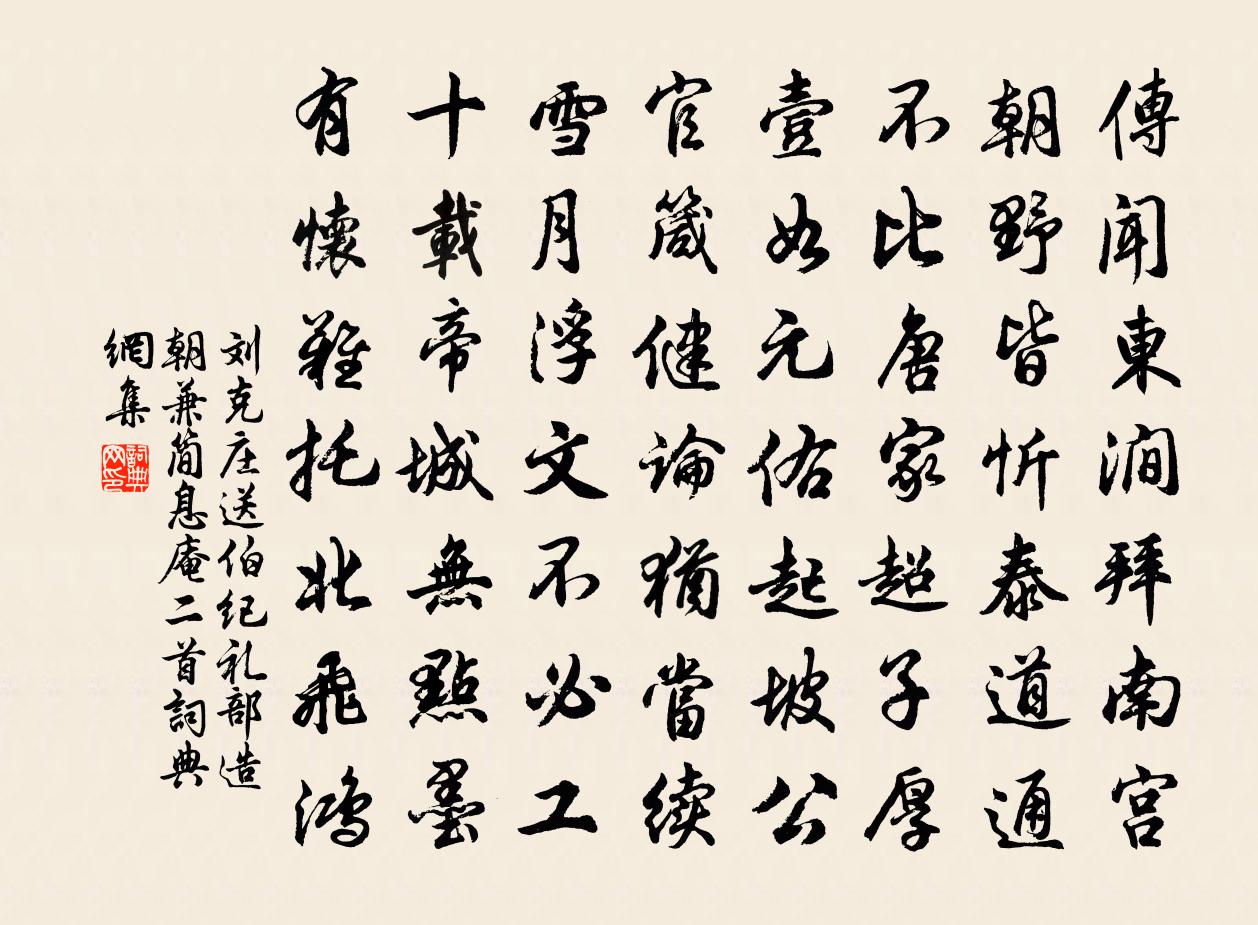 傳聞東澗拜南宮
朝野皆忻泰道通
不比唐家超子厚
壹如元佑起坡公
官箴健論猶當续
雪月浮文不必工
十載帝城無點墨
有懷難托北飛鴻
刘克庄送伯纪礼部造
朝兼简息庵二首詞典
網集
詞典
网印